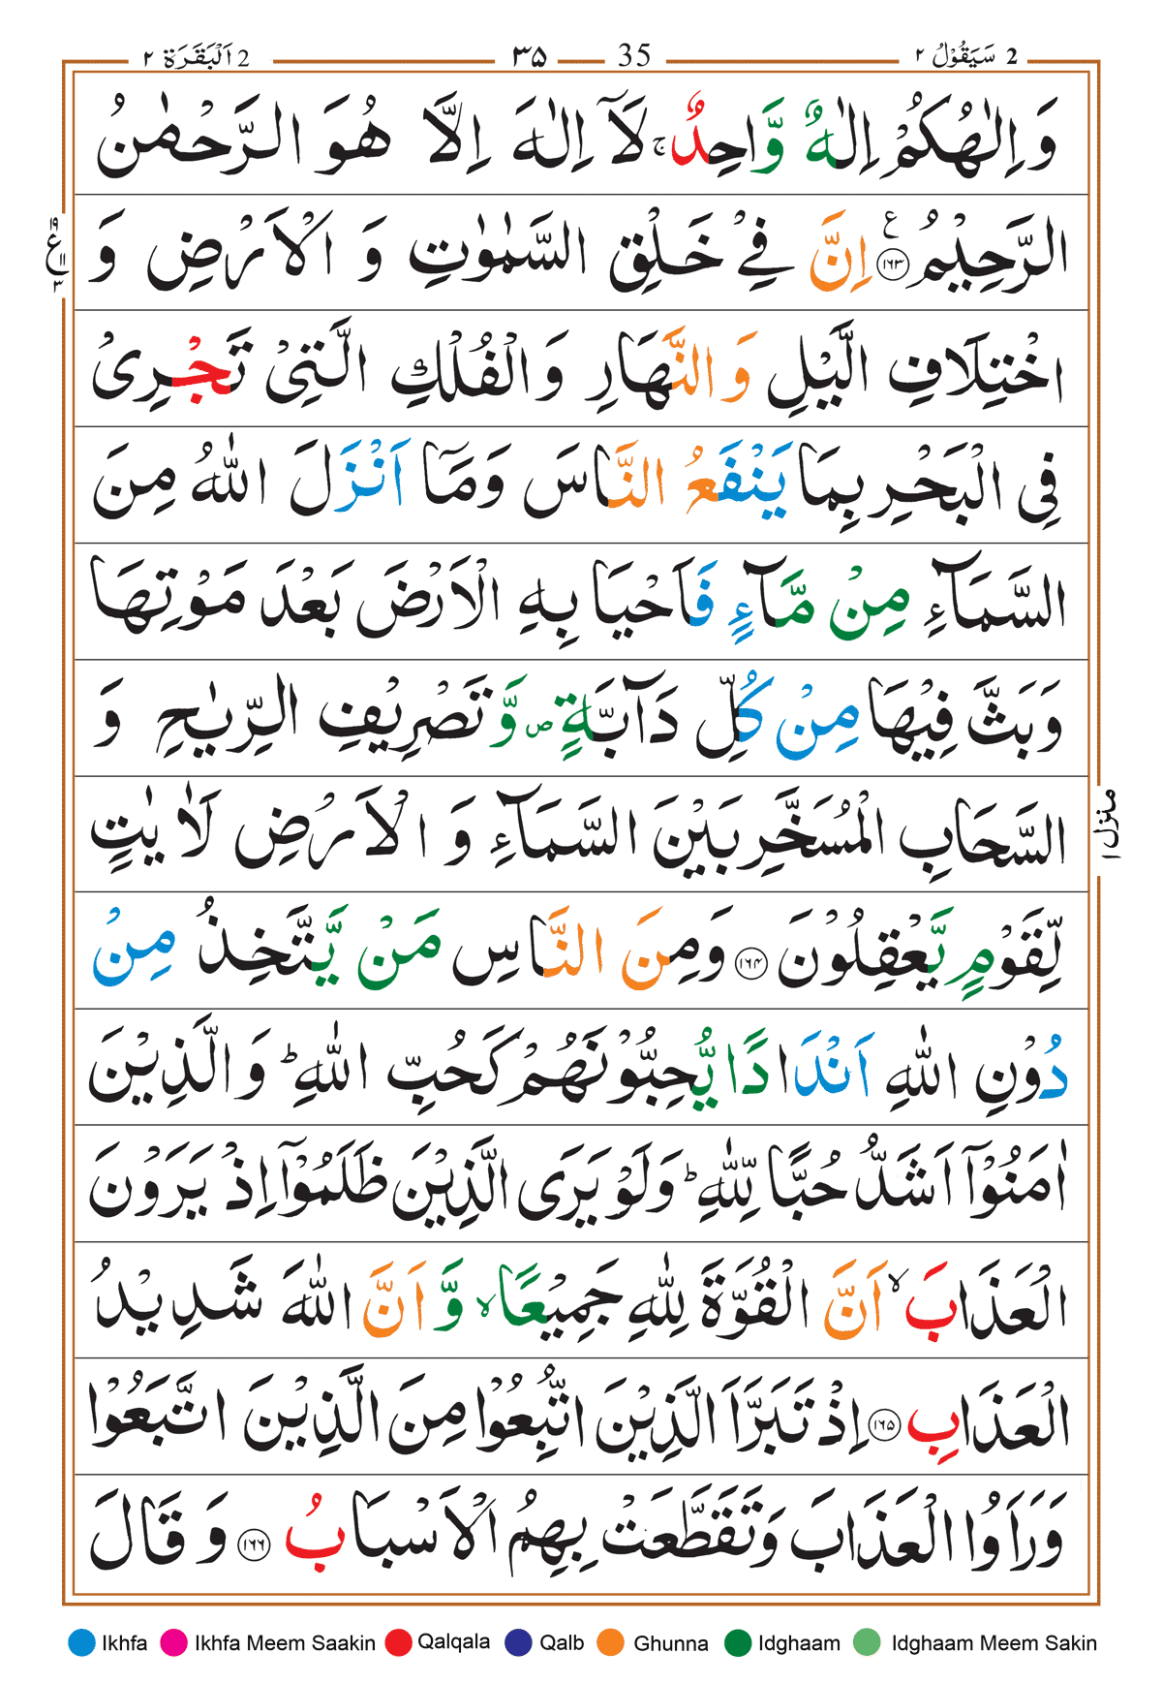 2 سَيَقُوْلُ ٢
35 ٣٥
2 اَلْبَقَرَة ٢
وَاِلٰهُكُمْ اِلٰهٌ وَّاحِدٌ ۚ لَآ اِلٰهَ اِلَّا هُوَ الرَّحْمٰنُ
الرَّحِيْمُ ۧ ﴿۱۶۳﴾ اِنَّ فِيْ خَلْقِ السَّمٰوٰتِ وَ الْاَرْضِ وَ
ع ١٩ ١١ ٣
اخْتِلَافِ الَّيْلِ وَالنَّهَارِ وَالْفُلْكِ الَّتِيْ تَجْرِىْ
فِى الْبَحْرِ بِمَا يَنْفَعُ النَّاسَ وَمَآ اَنْزَلَ اللّٰهُ مِنَ
السَّمَآءِ مِنْ مَّآءٍ فَاَحْيَا بِهِ الْاَرْضَ بَعْدَ مَوْتِهَا
وَبَثَّ فِيْهَا مِنْ كُلِّ دَآبَّةٍ ۪ وَّتَصْرِيْفِ الرِّيٰحِ وَ
السَّحَابِ الْمُسَخَّرِ بَيْنَ السَّمَآءِ وَ الْاَرْضِ لَاٰيٰتٍ
منزل ١
لِّقَوْمٍ يَّعْقِلُوْنَ ﴿۱۶۴﴾ وَمِنَ النَّاسِ مَنْ يَّتَّخِذُ مِنْ
دُوْنِ اللّٰهِ اَنْدَادًا يُّحِبُّوْنَهُمْ كَحُبِّ اللّٰهِ ؕ وَالَّذِيْنَ
اٰمَنُوْٓا اَشَدُّ حُبًّا لِّلّٰهِ ؕ وَلَوْ يَرَى الَّذِيْنَ ظَلَمُوْٓا اِذْ يَرَوْنَ
الْعَذَابَ ۙ اَنَّ الْقُوَّةَ لِلّٰهِ جَمِيْعًا ۙ وَّ اَنَّ اللّٰهَ شَدِيْدُ
الْعَذَابِ ﴿۱۶۵﴾ اِذْ تَبَرَّاَ الَّذِيْنَ اتُّبِعُوْا مِنَ الَّذِيْنَ اتَّبَعُوْا
وَرَاَوُا الْعَذَابَ وَتَقَطَّعَتْ بِهِمُ الْاَسْبَابُ ﴿۱۶۶﴾ وَ قَالَ
Ikhfa Ikhfa Meem Saakin Qalqala Qalb Ghunna Idghaam Idghaam Meem Sakin